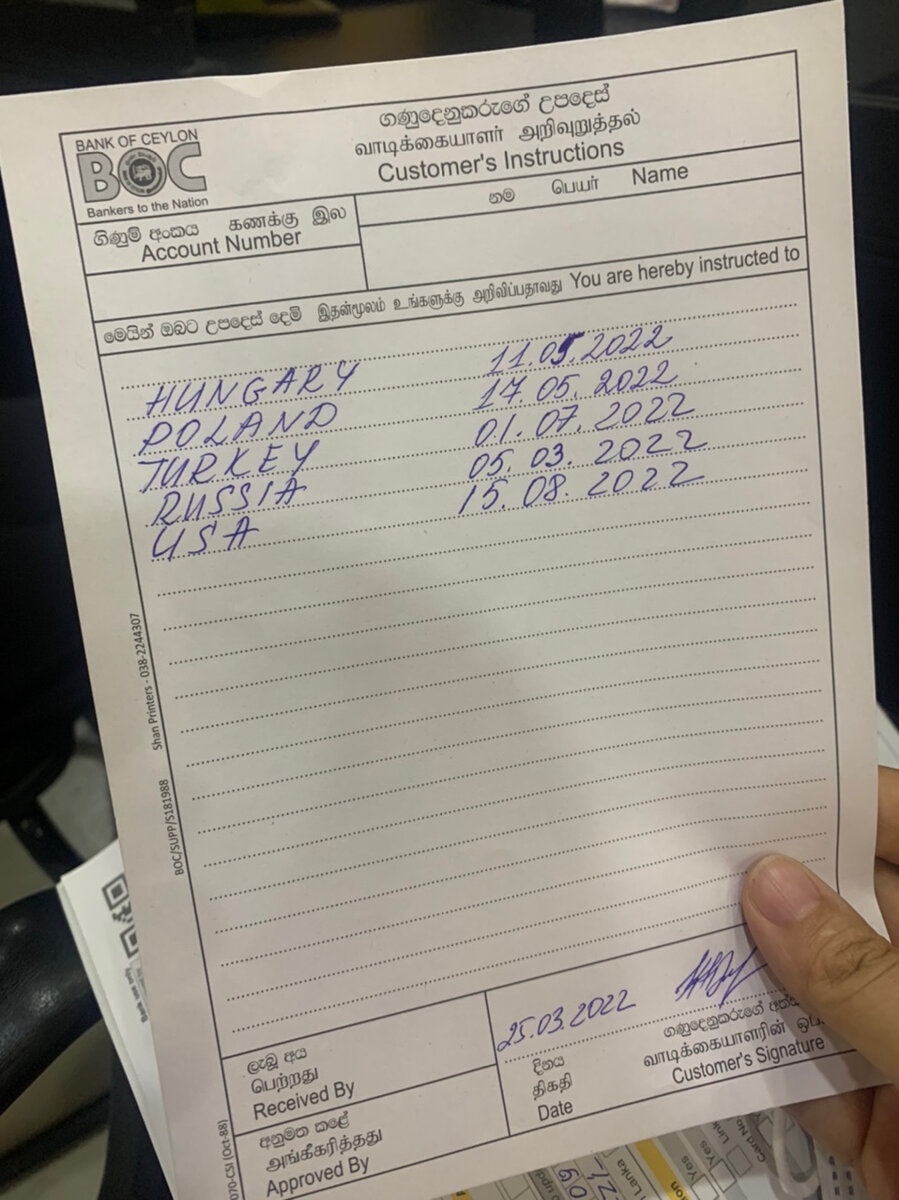 BANK OF CEYLON
BOC
Bankers to the Nation
ගණුදෙනුකරුගේ උපදෙස්
வாடிக்கையாளர் அறிவுறுத்தல்
Customer's Instructions
ගිණුම් අංකය கணக்கு இல
Account Number
නම பெயர் Name
මෙයින් ඔබට උපදෙස් දෙමි இதன்மூலம் உங்களுக்கு அறிவிப்பதாவது You are hereby instructed to
HUNGARY 11.05.2022
POLAND 17.05.2022
TURKEY 01.07.2022
RUSSIA 05.03.2022
USA 15.08.2022
Shan Printers - 038-2244307
BOC/SUPP/S181988
070-CSI (Oct-88)
ලැබූ අය
பெற்றது
Received By
අනුමත කළේ
அங்கீகரித்தது
Approved By
25.03.2022
දිනය
திகதி
Date
ගණුදෙනුකරුගේ
வாடிக்கையாளரின்
Customer's Signature
Lanka
Yes
Yes